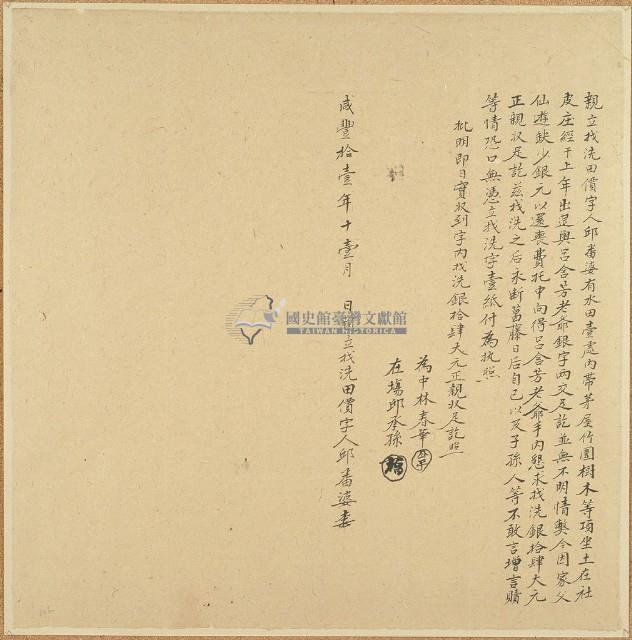 親立找洗田價字人邱番婆有水田壹處內帶茅屋竹圍樹木等項坐土在社
皮庄經于上年出退與呂含芳老爺銀字兩交足訖並無不明情弊今因家父
仙遊缺少銀元以還喪費托中向得呂含芳老爺手內懇求找洗銀拾肆大元
正親收足訖茲找洗之后永斷葛藤日后自己以及子孫人等不敢言增言贖
等情恐口無憑立找洗字壹紙付為執照
批明即日實收到字內找洗銀拾肆大元正親收足訖照
為中林春華
在場邱承孫
咸豐拾壹年十壹月 日親立找洗田價字人邱番婆
國史館臺灣文獻館
TAIWAN HISTORICA